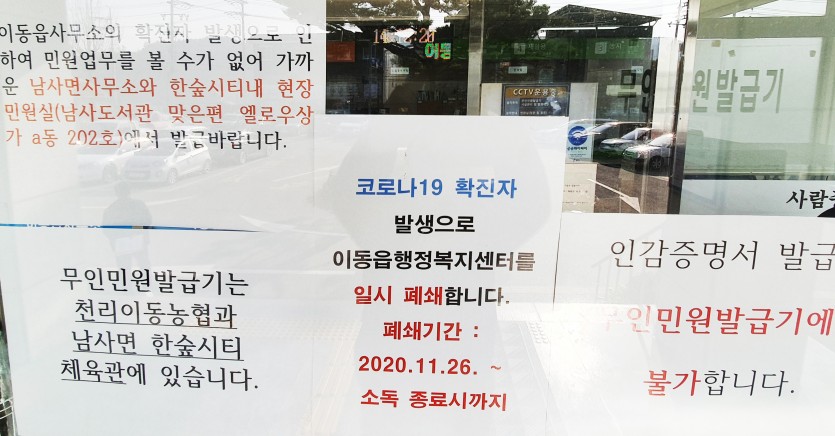 이동읍사무소의 확진자 발생으로 인
하여 민원업무를 볼 수가 없어 가까
운 남사면사무소와 한숲시티내 현장
민원실(남사도서관 맞은편 옐로우상
가 a동 202호)에서 발급바랍니다.
CCTV운용중
무인민원발급기
사람
코로나19 확진자
발생으로
이동읍행정복지센터를
일시 폐쇄합니다.
폐쇄기간 :
2020.11.26. ~
소독 종료시까지
무인민원발급기는
천리이동농협과
남사면 한숲시티
체육관에 있습니다.
인감증명서 발급
무인민원발급기에
불가합니다.